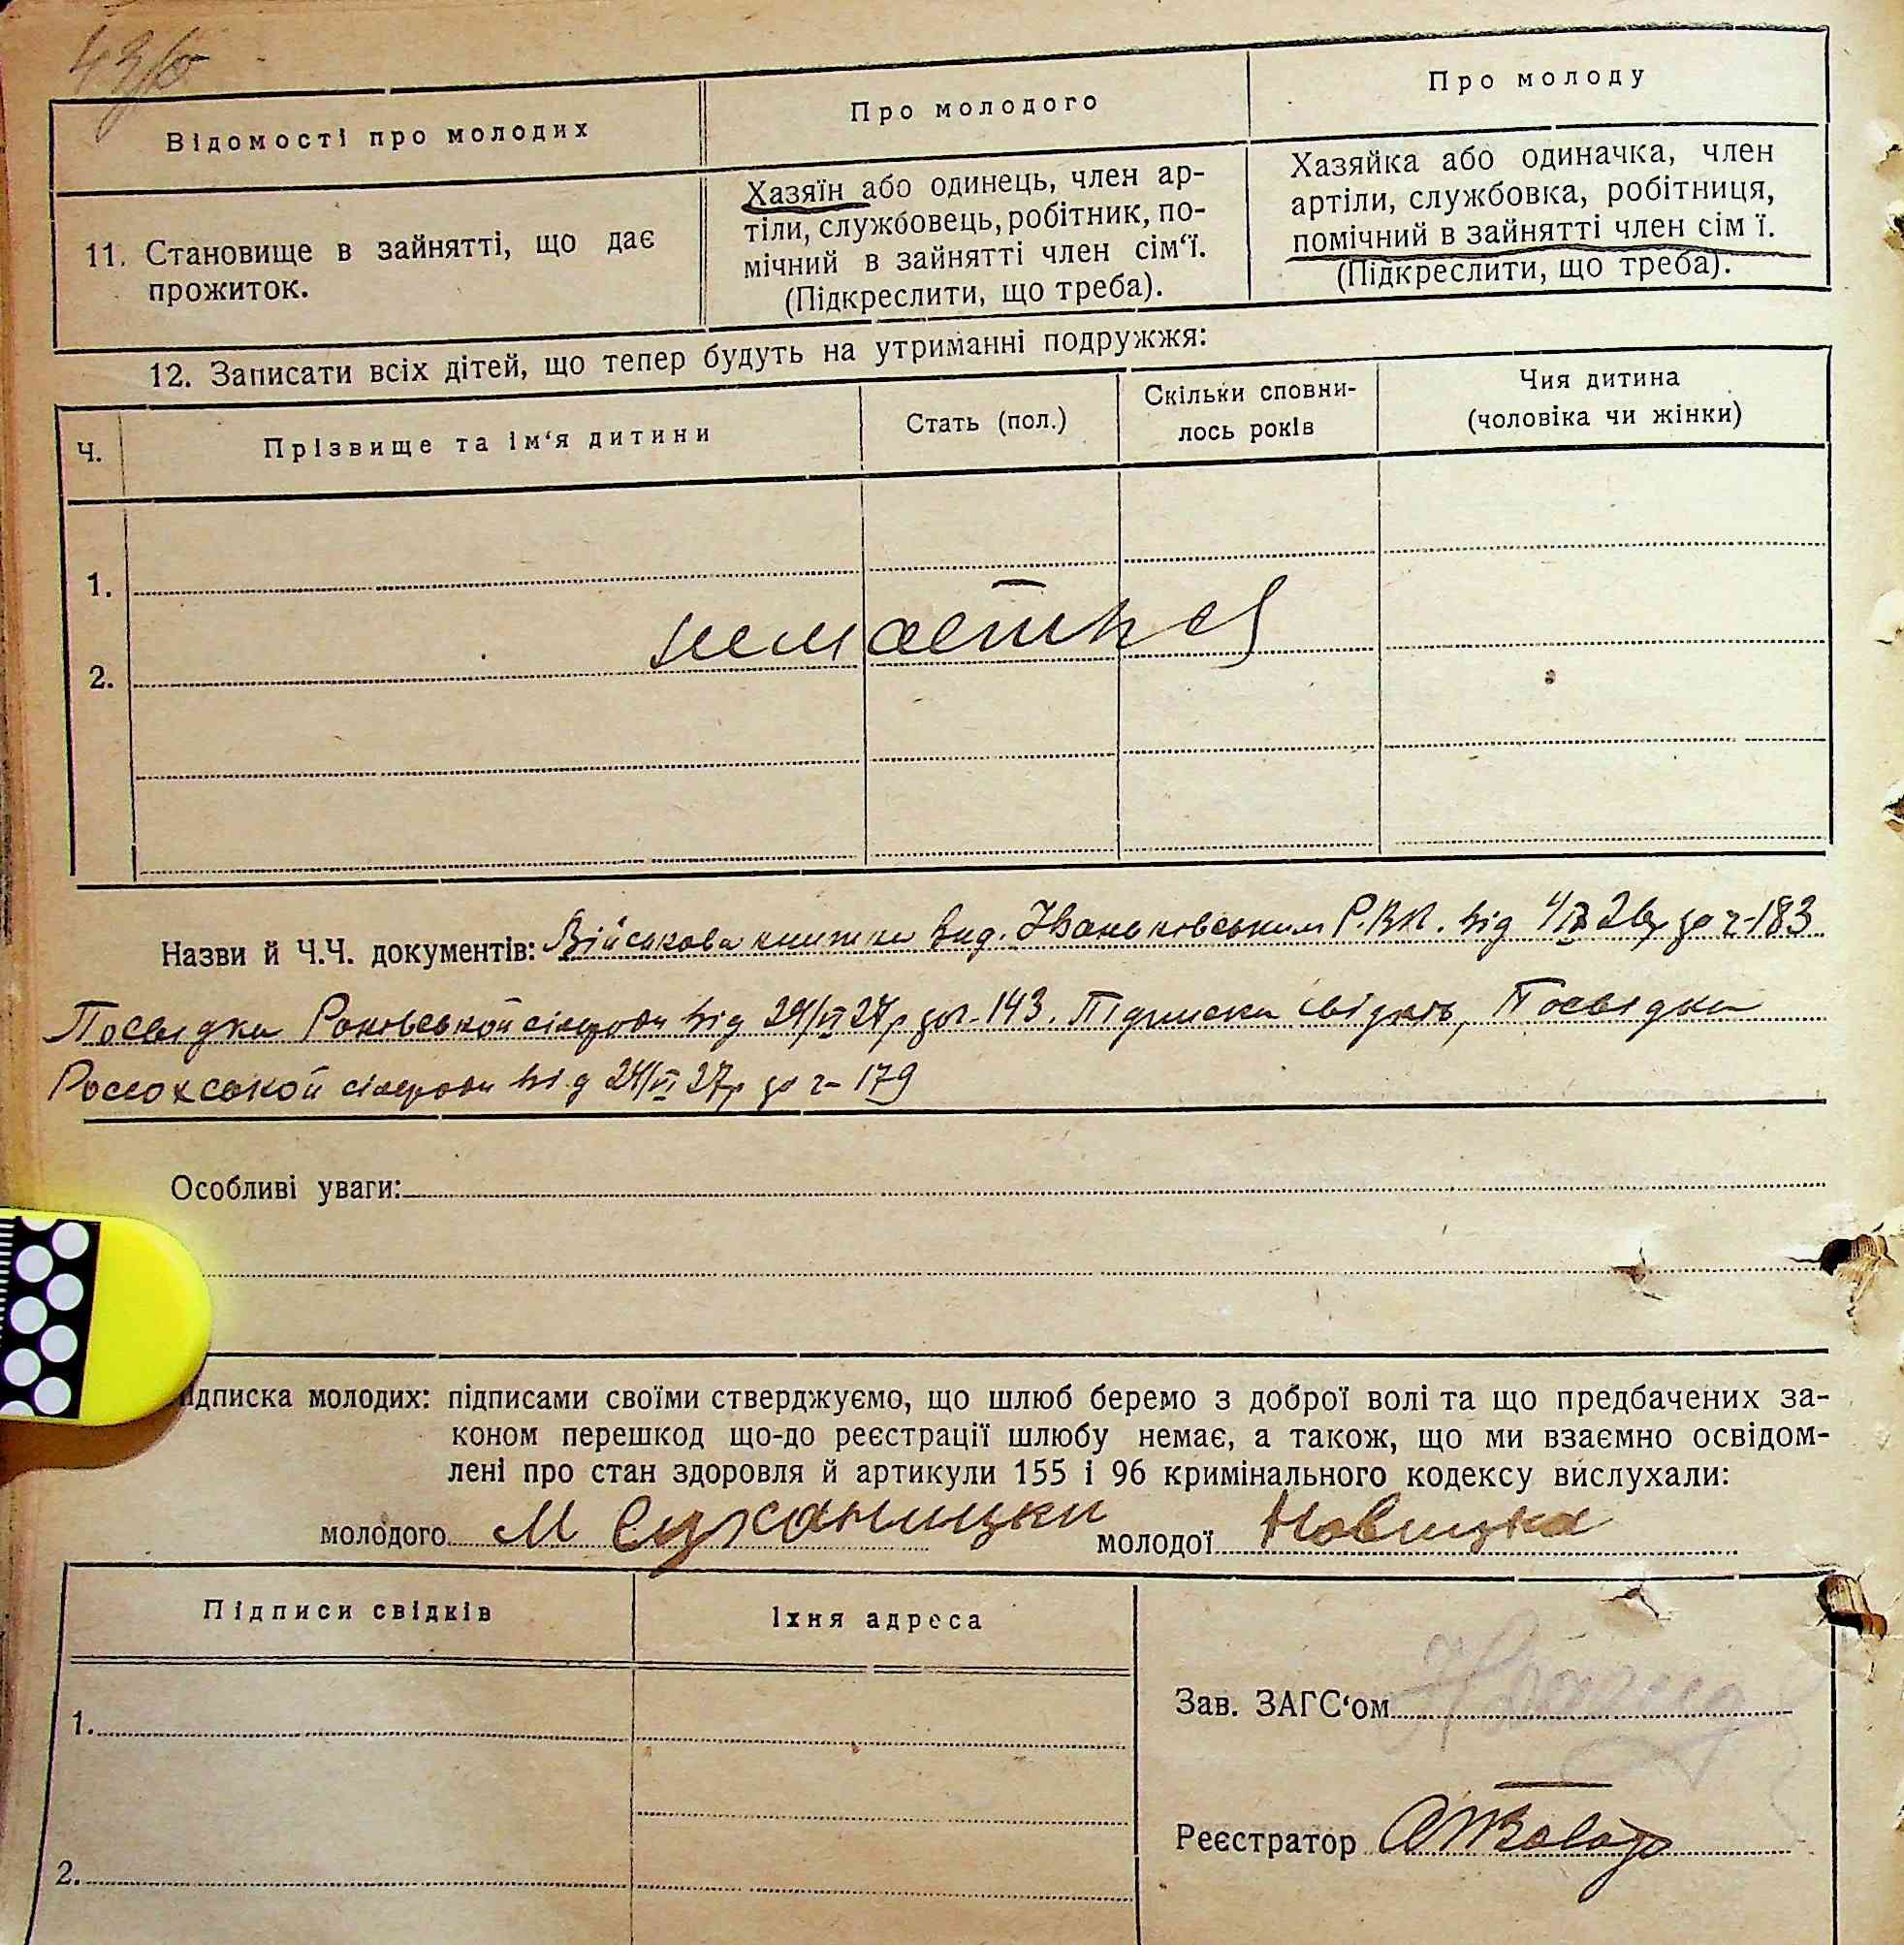 Відомості про молодих
Про молодого
Про молоду
11. Становище в зайнятті, що дає
прожиток.
Хазяїн або одинець, член ар-
тіли, службовець, робітник, по-
мічний в зайнятті член сім‘ї.
(Підкреслити, що треба).
Хазяйка або одиначка, член
артіли, службовка, робітниця,
помічний в зайнятті член сім ї.
(Підкреслити, що треба).
12. Записати всіх дітей, що тепер будуть на утриманні подружжя:
Ч.
Прізвище та ім‘я дитини
Стать (пол.)
Скільки сповни-
лось років
Чия дитина
(чоловіка чи жінки)
1.
2.
немаеться
Назви й Ч.Ч. документів: Військова книжка вид. Іваньковським Р.В.К. від 4/ІХ 26р за ч-183
Посвідка Роковської сільради від 24/VI 27р за ч-143. Підписка свідків, Посвідка
Россохської сільради від 24/VI 27р за ч-179
Особливі уваги:
ідписка молодих: підписами своїми стверджуємо, що шлюб беремо з доброї волі та що предбачених за-
коном перешкод що-до реєстрації шлюбу немає, а також, що ми взаємно освідом-
лені про стан здоровля й артикули 155 і 96 кримінального кодексу вислухали:
молодого М Суханицки молодої Новицка
Підписи свідків
Іхня адреса
1.
2.
Зав. ЗАГС‘ом
Реєстратор